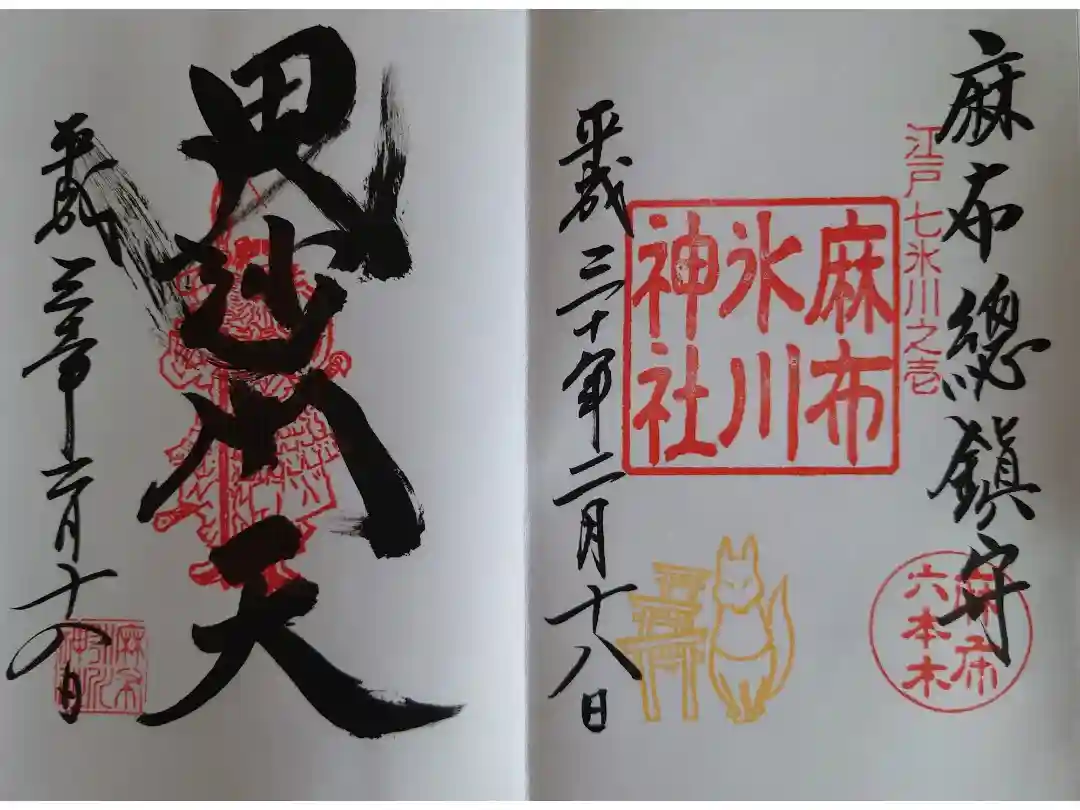 麻布總鎮守
江戸七氷川之壱
麻布
六本木
麻布
氷川
神社
平成三十年二月十八日
毘沙門天
平成三十年月十四日
麻布
氷川